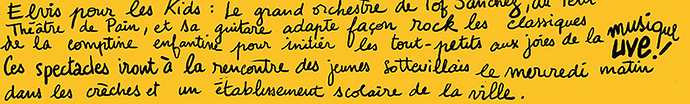 Elvis pour les Kids : Le grand orchestre de Tof Sanchez, du Petit
Théâtre de Pain, et sa guitare adapte façon rock les classiques
de la comptine enfantine pour initier les tout-petits aux joies de la musique
LIVE!
Ces spectacles iront à la rencontre des jeunes Sottevillais le mercredi matin
dans les crèches et un établissement scolaire de la ville.